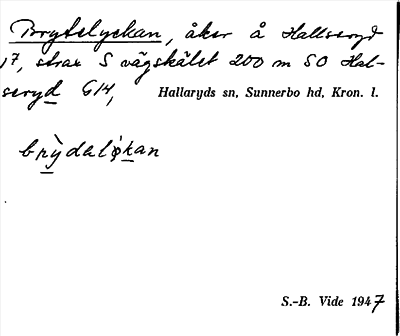 Brytelyckan, åker å Hallseryd
17, strax S vägskälet 200 m SO Hal-
seryd G14, Hallaryds sn, Sunnerbo hd, Kron. l.
brỳdalykan
S.-B. Vide 1947